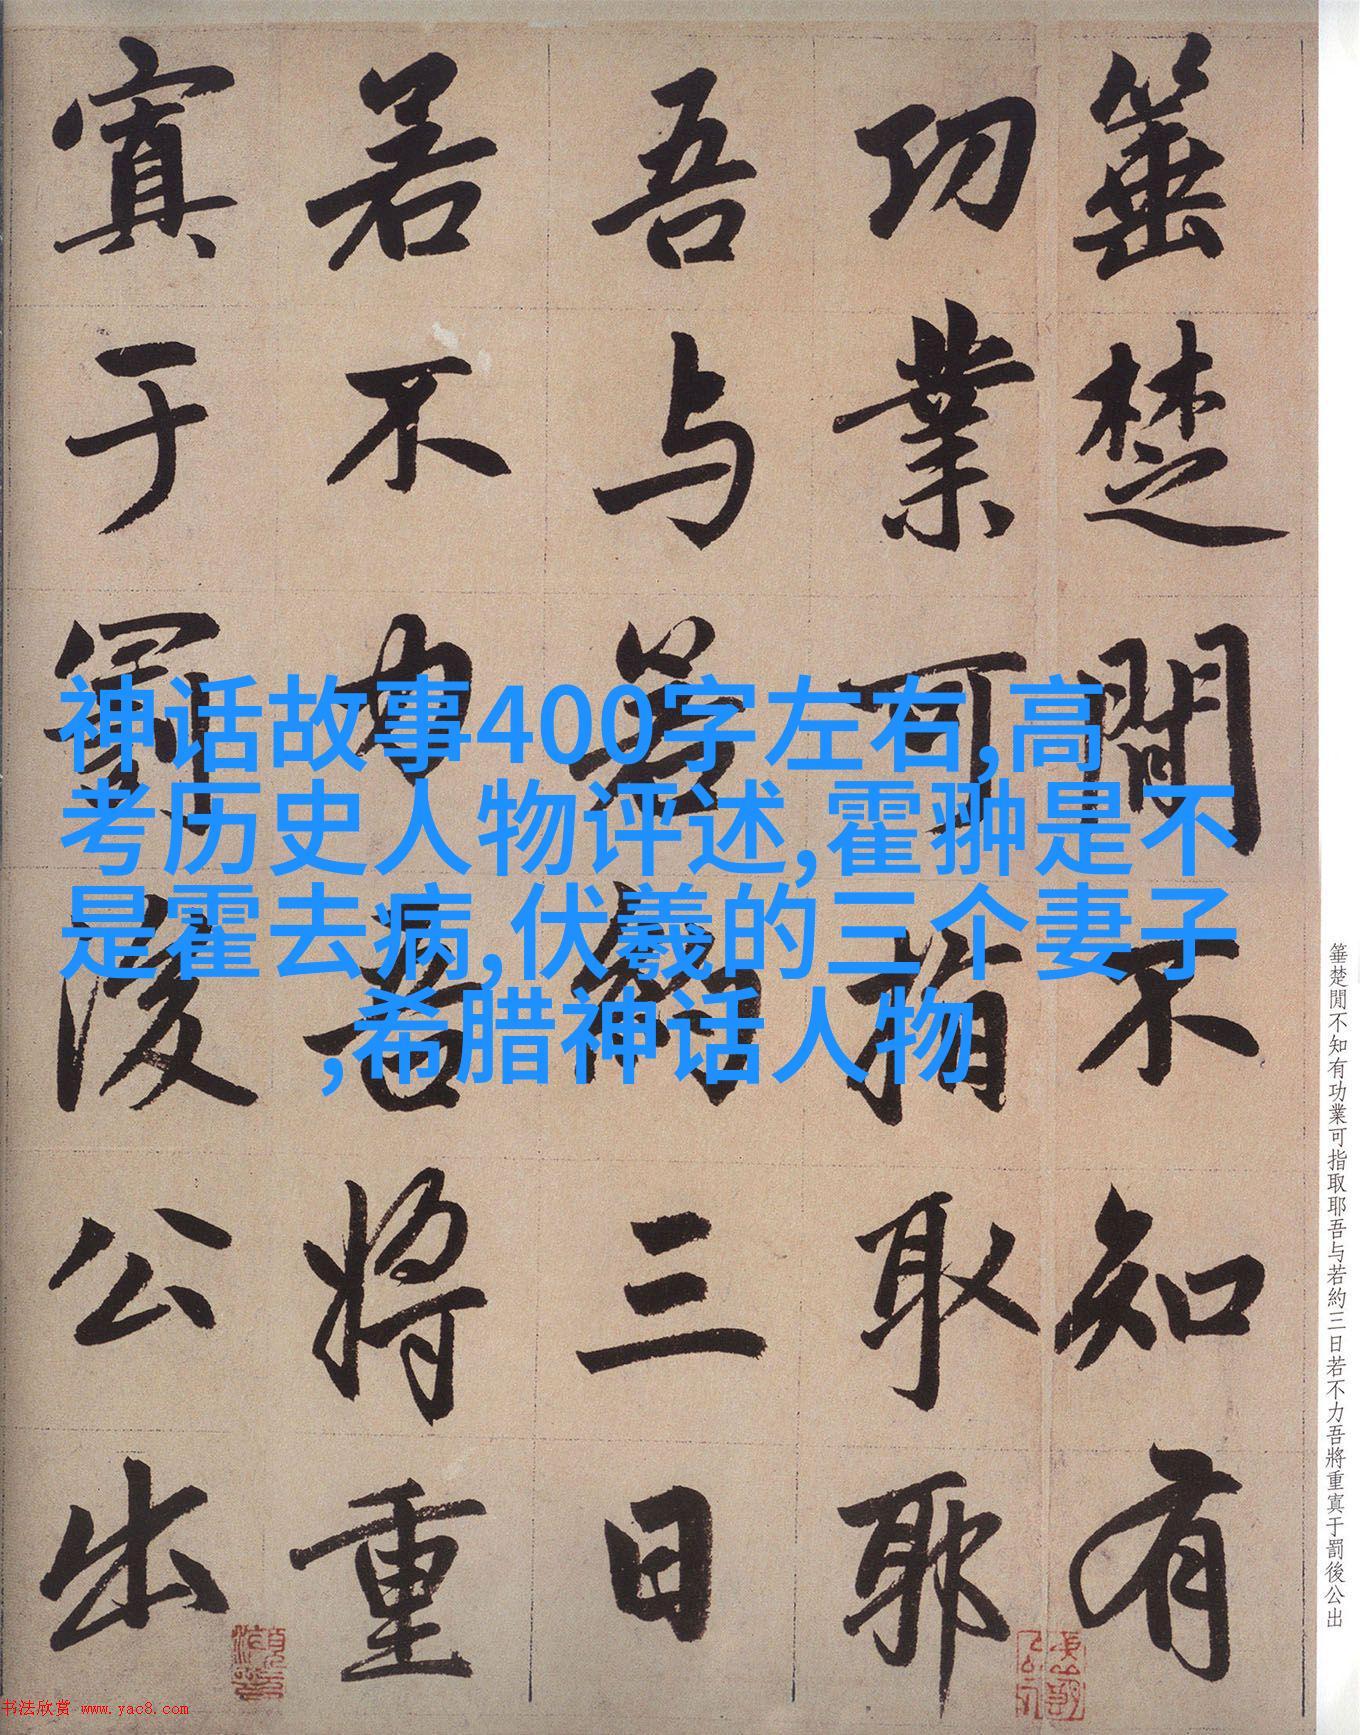 箠楚間不知有
功業可指取耶
吾与若約三日
若不力吾將重
寘于罰後公出
神话故事400字左右,高
考历史人物评述,霍翀是不
是霍去病,伏羲的三个妻子
,希腊神话人物
箠楚閒不知有功業可指取耶吾与若約三日若不力吾將重寘于罰後公出
书法欣赏 www.yac8.com